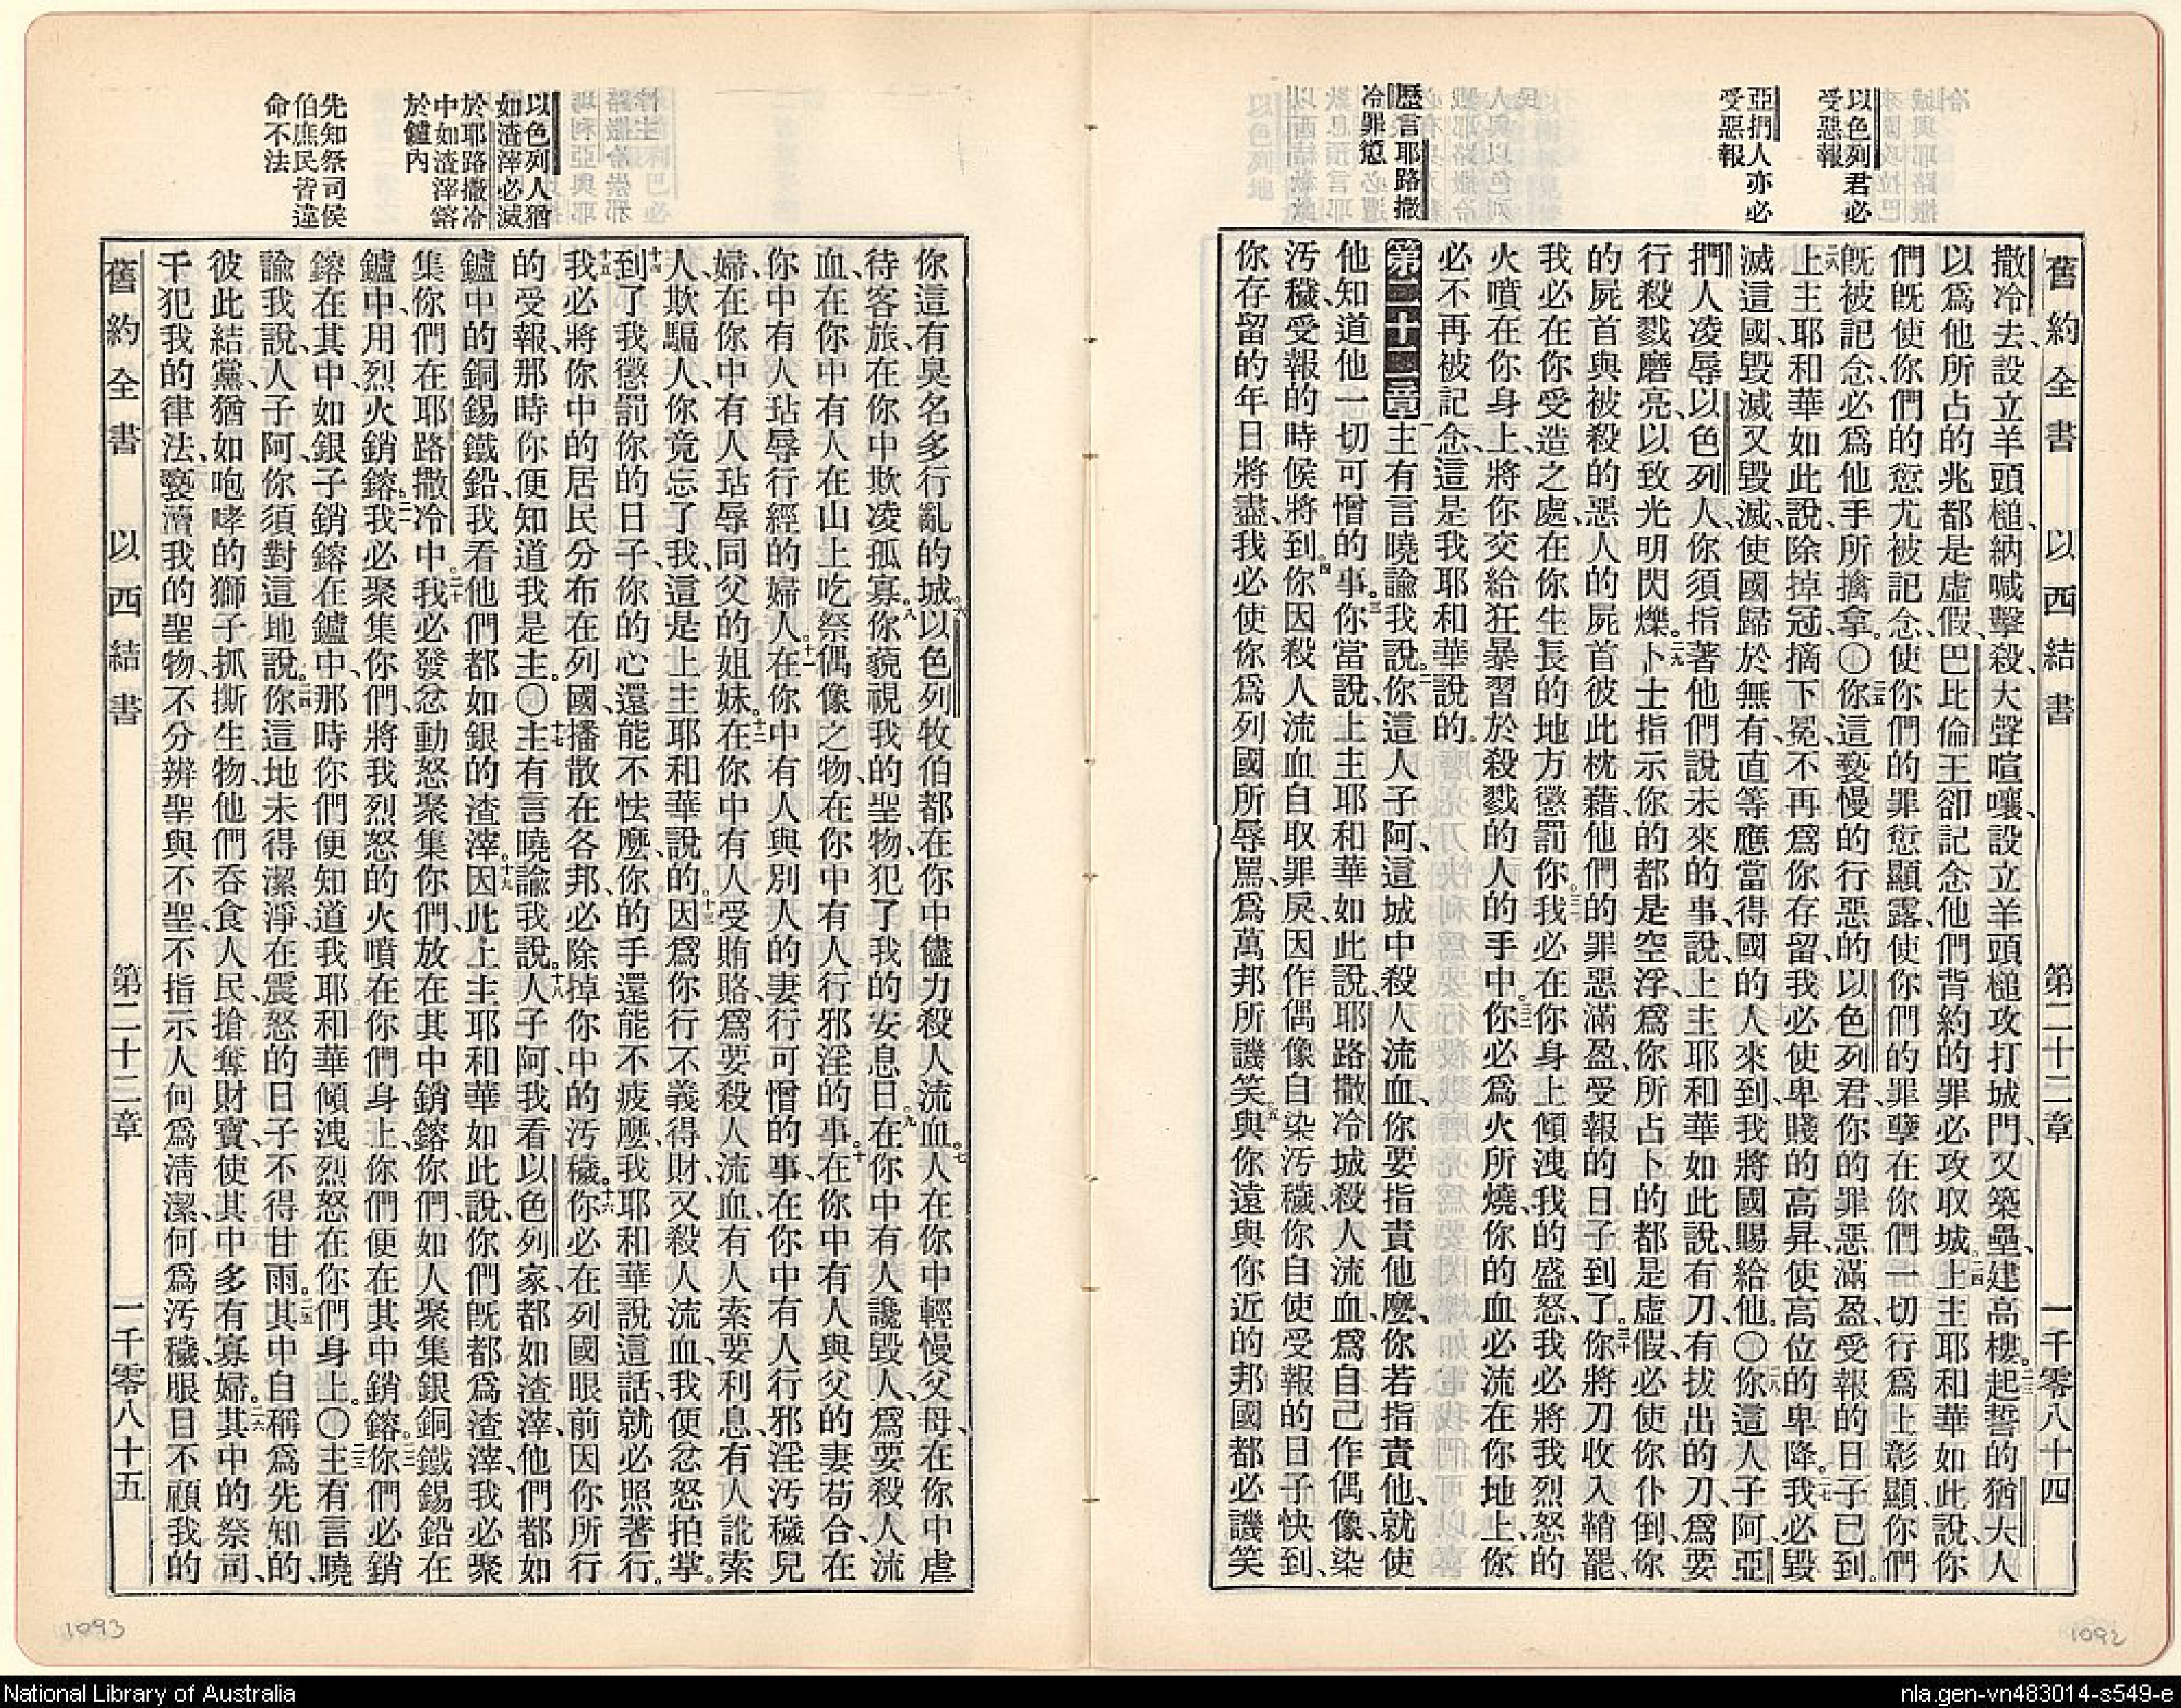 舊約全書 以西結書 第二十二章 一千零八十四
以色列君必
受惡報
亞捫人亦必
受惡報
歷言耶路撒
冷罪愆
撒冷去、設立羊頭槌、吶喊擊殺、大聲喧嚷、設立羊頭槌攻打城門、又築壘、建高樓。二三起誓的猶大人
以爲他所占的兆都是虛假、巴比倫王卻記念他們背約的罪必攻取城。二四上主耶和華如此說、你
們旣使你們的愆尤被記念、使你們的罪愆顯露、使你們的罪孽在你們一切行爲上彰顯、你們
旣被記念、必爲他手所擒拿。〇二五你這褻慢的行惡的以色列君、你的罪惡滿盈、受報的日子已到。
二六上主耶和華如此說、除掉冠、摘下冕、不再爲你存留、我必使卑賤的高昇、使高位的卑降。二七我必毀
滅這國、毀滅又毀滅、使國歸於無有、直等應當得國的人來到、我將國賜給他。〇二八你這人子阿、亞
捫人凌辱以色列人、你須指著他們說未來的事、說、上主耶和華如此說、有刀、有拔出的刀、爲要
行殺戮磨亮、以致光明閃爍。二九卜士指示你的都是空浮、爲你所占卜的都是虛假、必使你仆倒、你
的屍首與被殺的惡人的屍首彼此枕藉、他們的罪惡滿盈、受報的日子到了。三十你將刀收入鞘罷、
我必在你受造之處、在你生長的地方懲罰你。三一我必在你身上傾洩我的盛怒、我必將我烈怒的
火噴在你身上、將你交給狂暴習於殺戮的人的手中。三二你必爲火所燒、你的血必流在你地上、你
必不再被記念、這是我耶和華說的。
第二十二章 一主有言曉諭我說。二你這人子阿、這城中殺人流血、你要指責他麼、你若指責他、就使
他知道他一切可憎的事。三你當說、上主耶和華如此說、耶路撒冷城殺人流血、爲自己作偶像、染
汚穢、受報的時候將到。四你因殺人流血自取罪戾、因作偶像自染汚穢、你自使受報的日子快到、
你存留的年日將盡、我必使你爲列國所辱罵、爲萬邦所譏笑。五與你遠與你近的邦國都必譏笑
以色列人猶
如渣滓必滅
於耶路撒冷
中如渣滓鎔
於鑪內
先知祭司侯
伯庶民皆違
命不法
你這有臭名多行亂的城。六以色列牧伯都在你中儘力殺人流血。七人在你中輕慢父母、在你中虐
待客旅、在你中欺凌孤寡。八你藐視我的聖物、犯了我的安息日。九在你中有人讒毀人、爲要殺人流
血、在你中有人在山上吃祭偶像之物、在你中有人行邪淫的事。十在你中有人與父的妻苟合、在
你中有人玷辱行經的婦人。十一在你中有人與別人的妻行可憎的事、在你中有人行邪淫汚穢兒
婦、在你中有人玷辱同父的姐妹。十二在你中有人受賄賂、爲要殺人流血、有人索要利息、有人訛索
人、欺騙人、你竟忘了我、這是上主耶和華說的。十三因爲你行不義得財、又殺人流血、我便忿怒拍掌。
十四到了我懲罰你的日子、你的心還能不怯麼、你的手還能不疲麼、我耶和華說這話、就必照著行。
十五我必將你中的居民分布在列國、播散在各邦、必除掉你中的汚穢。十六你必在列國眼前因你所行
的受報、那時你便知道我是主。〇十七主有言曉諭我說。十八人子阿、我看以色列家都如渣滓、他們都如
鑪中的銅錫鐵鉛、我看他們都如銀的渣滓。十九因此上主耶和華如此說、你們旣都爲渣滓、我必聚
集你們在耶路撒冷中。二十我必發忿動怒聚集你們、放在其中銷鎔你們、如人聚集銀銅鐵錫鉛在
鑪中、用烈火銷鎔。二一我必聚集你們、將我烈怒的火噴在你們身上、你們便在其中銷鎔。二二你們必銷
鎔在其中、如銀子銷鎔在鑪中、那時你們便知道我耶和華傾洩烈怒在你們身上。〇二三主有言曉
諭我說、人子阿、你須對這地說。二四你這地未得潔淨、在震怒的日子不得甘雨。二五其中自稱爲先知的、
彼此結黨、猶如咆哮的獅子抓撕生物、他們吞食人民、搶奪財寶、使其中多有寡婦。二六其中的祭司、
干犯我的律法、褻瀆我的聖物、不分辨聖與不聖、不指示人何爲清潔、何爲汚穢、眼目不顧我的
舊約全書 以西結書 第二十二章 一千零八十五
1093
1092
National Library of Australia
nla.gen-vn483014-s549-e